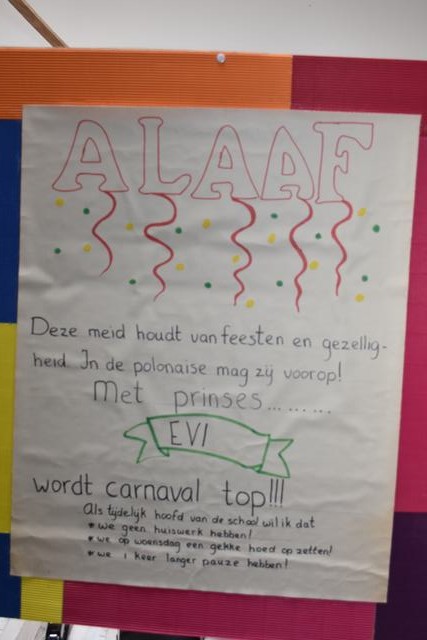 ALAAF
Deze meid houdt van feesten en gezellig-
heid. In de polonaise mag zij voorop!
Met prinses.........
EVI
wordt carnaval top!!!
Als tijdelijk hoofd van de school wil ik dat
* we geen huiswerk hebben!
* we op woensdag een gekke hoed op zetten!
* we 1 keer langer pauze hebben!